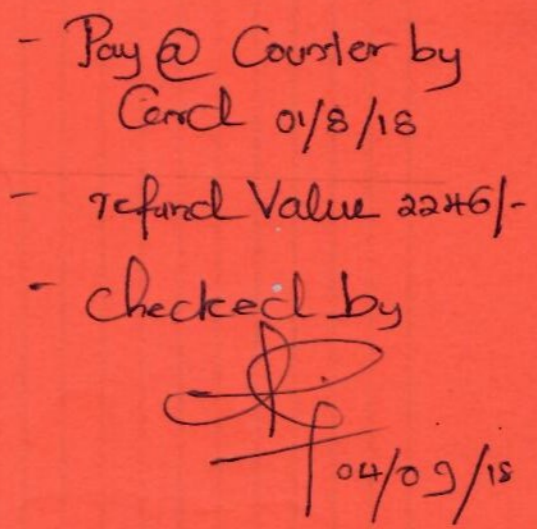 - Pay @ Counter by
Card 01/8/18
- refund Value 2246/-
- checked by
04/09/18